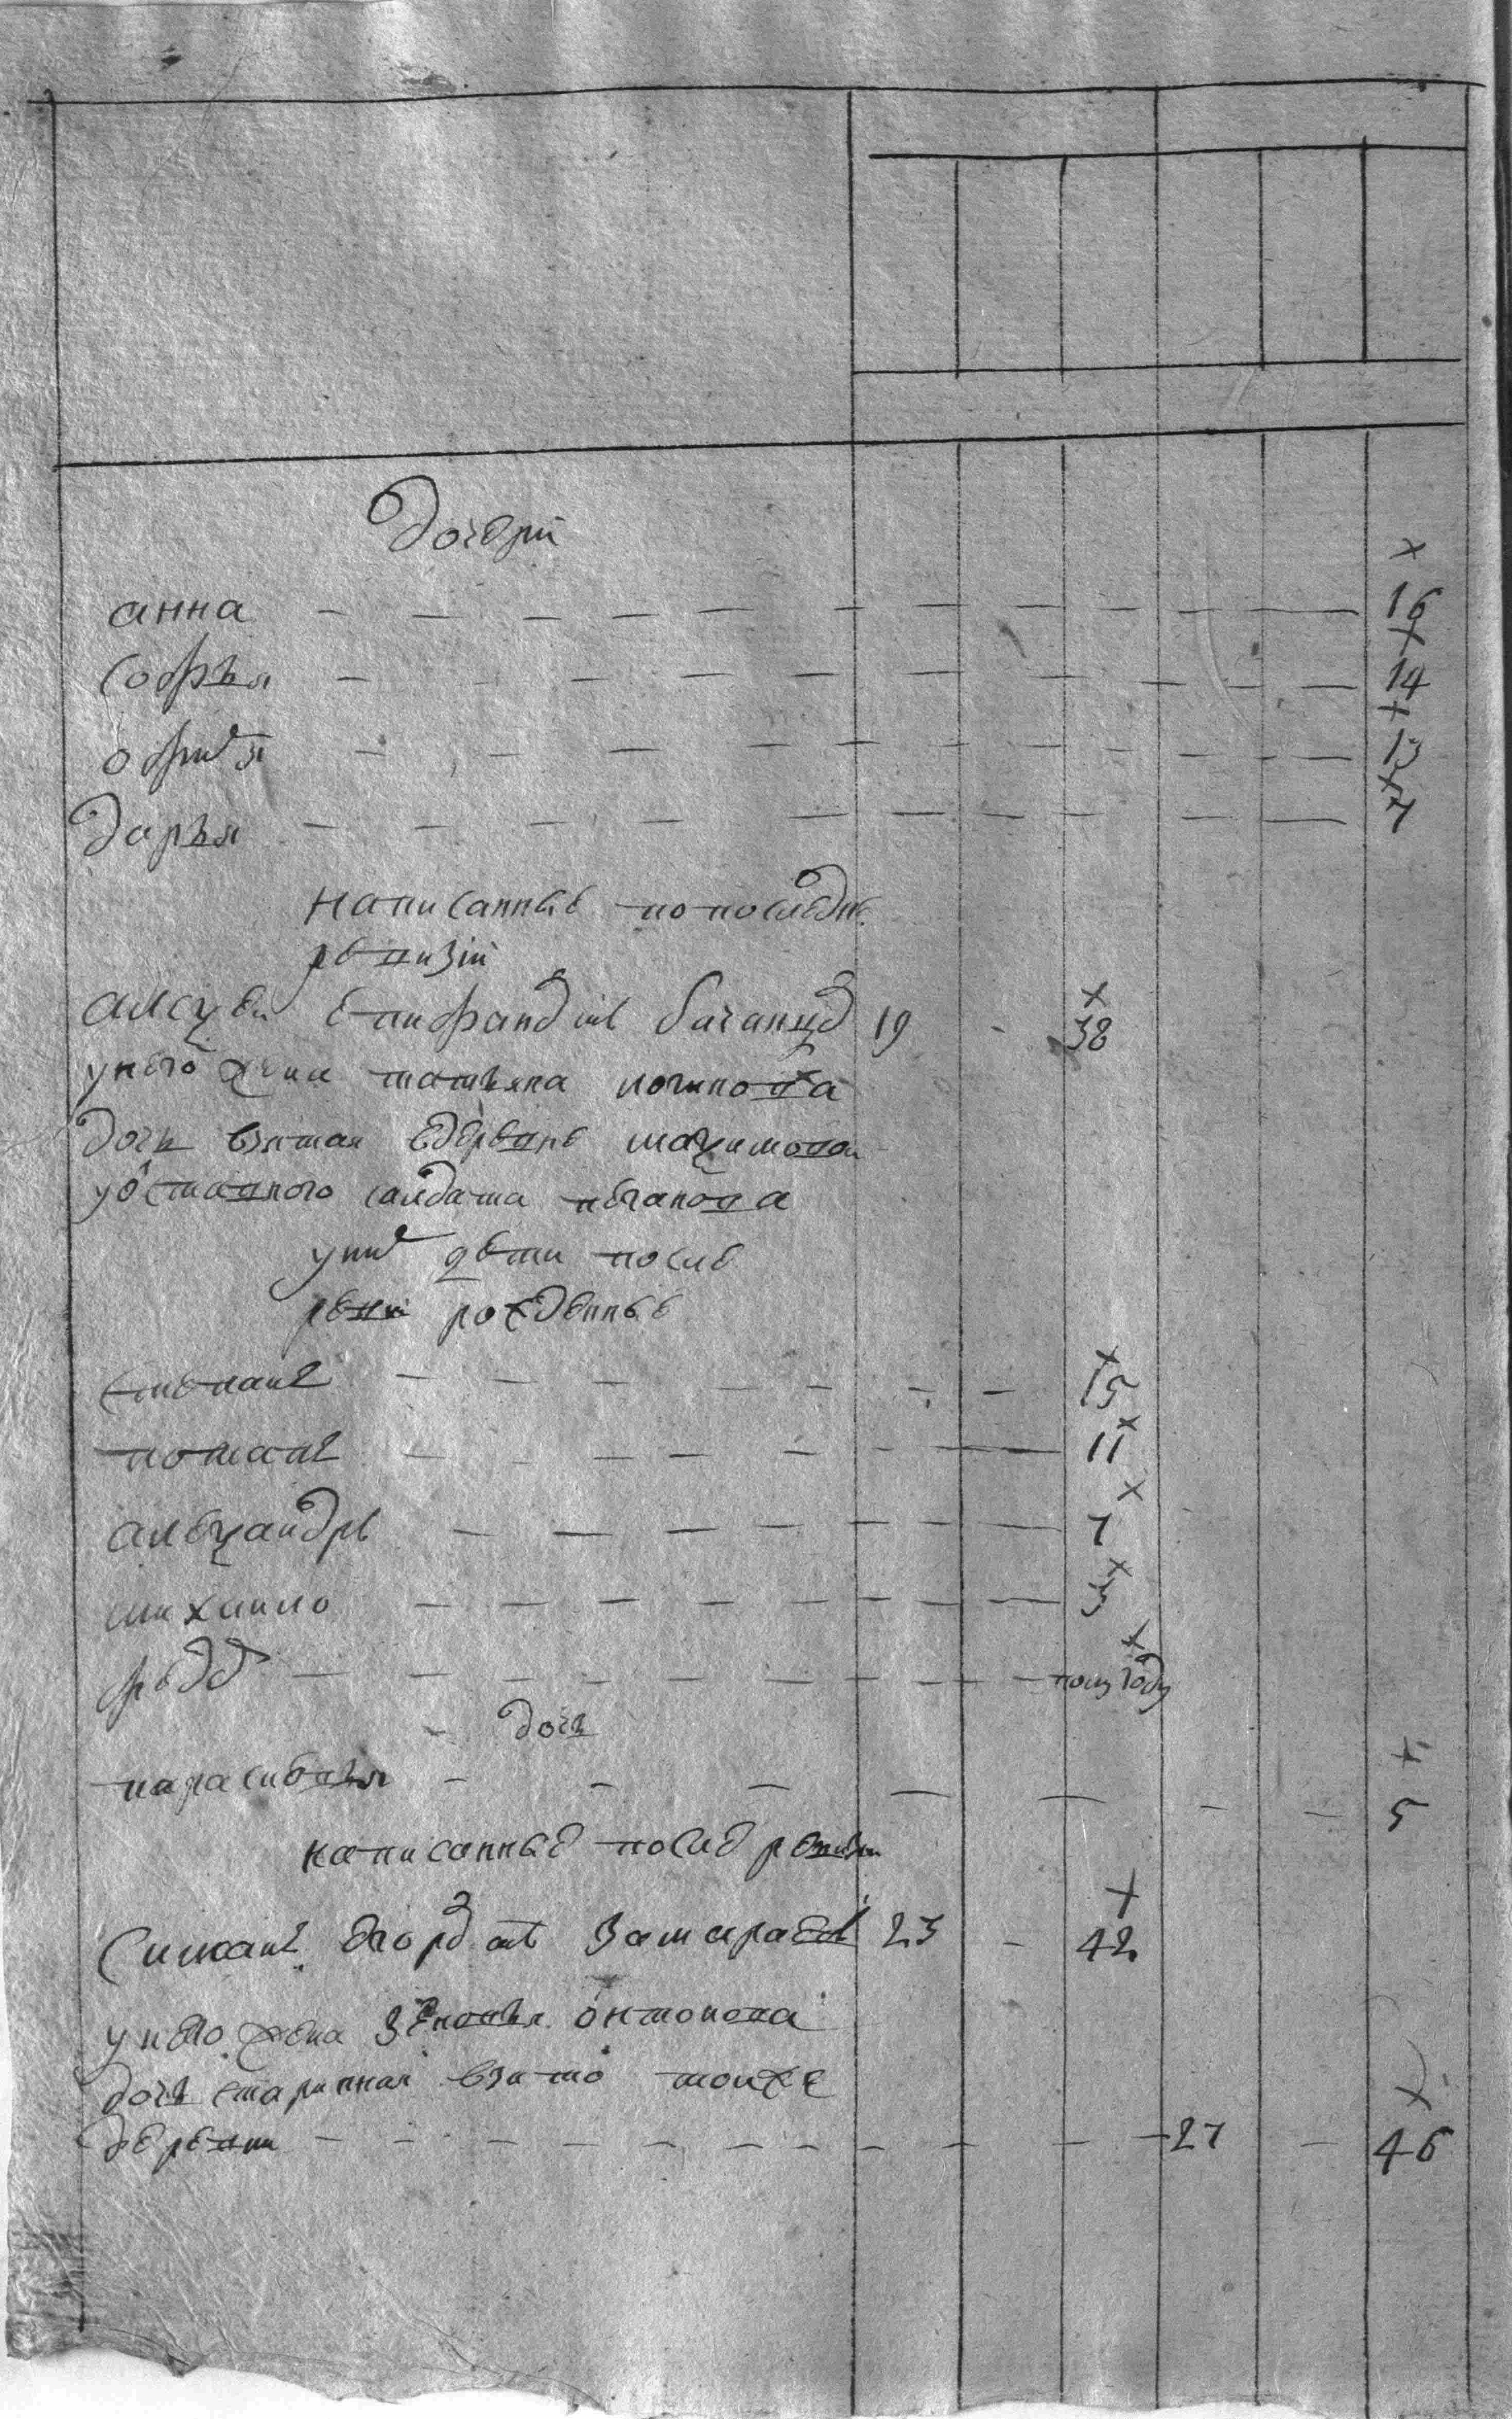 дочери
анна — 16
софья — 14
офимья — 13
дарья — 7
написанные по последне
ревизiи
алексей епифандiев 19 - 38
у него жена татьяна логинова
дочь взятая в деревне максимовой
у отставного салдата
у них дети после
ревизи рожденные
степанъ — 15
потапъ — 11
александръ — 7
михаило — 3
федо — полугоду
дочь
парасковья — 5
написанные после ревизии
симианъ 23 - 42
у него жена зеновья онтонова
дочь старинная взята тоижъ
деревни — 27 — 46